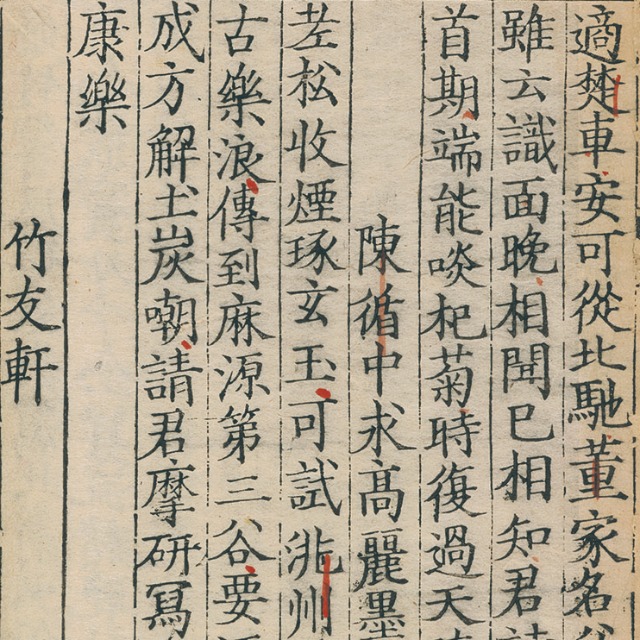 適楚車安可從北馳董家名
雖云識面晚相聞已相知君
首期端能啖杞菊時復過天
陳循中求高麗墨
老松收煙琢玄玉可試洮州
古樂浪傳到麻源第三谷要
成方解土炭嘲請君摩研寫
康樂
竹友軒